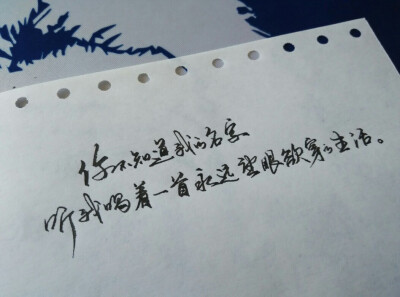 你不知道我的名字
听我唱着一首永远望眼欲穿的生活。